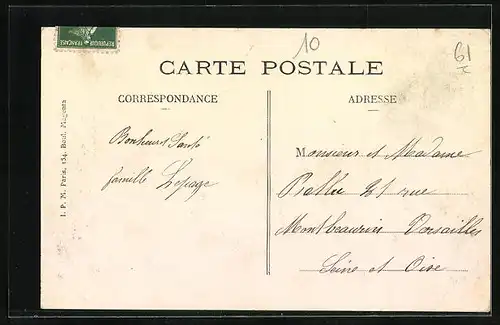 REPUBLIQUE FRANÇAISE
10
61
CARTE POSTALE
CORRESPONDANCE
ADRESSE
Bonheur et Santé
famille Lepage
Monsieur et Madame
21 rue
Versailles
Seine et Oise
I. P. M. Paris, 134, Boul. Magenta